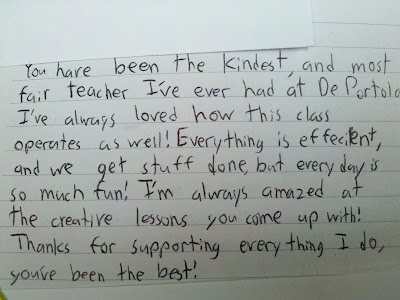 You have been the kindest, and most
fair teacher I've ever had at De Portola
I've always loved how this class
operates as well! Everything is effecitent,
and we get stuff done, but every day is
so much fun! I'm always amazed at
the creative lessons you come up with!
Thanks for supporting everything I do,
you've been the best!